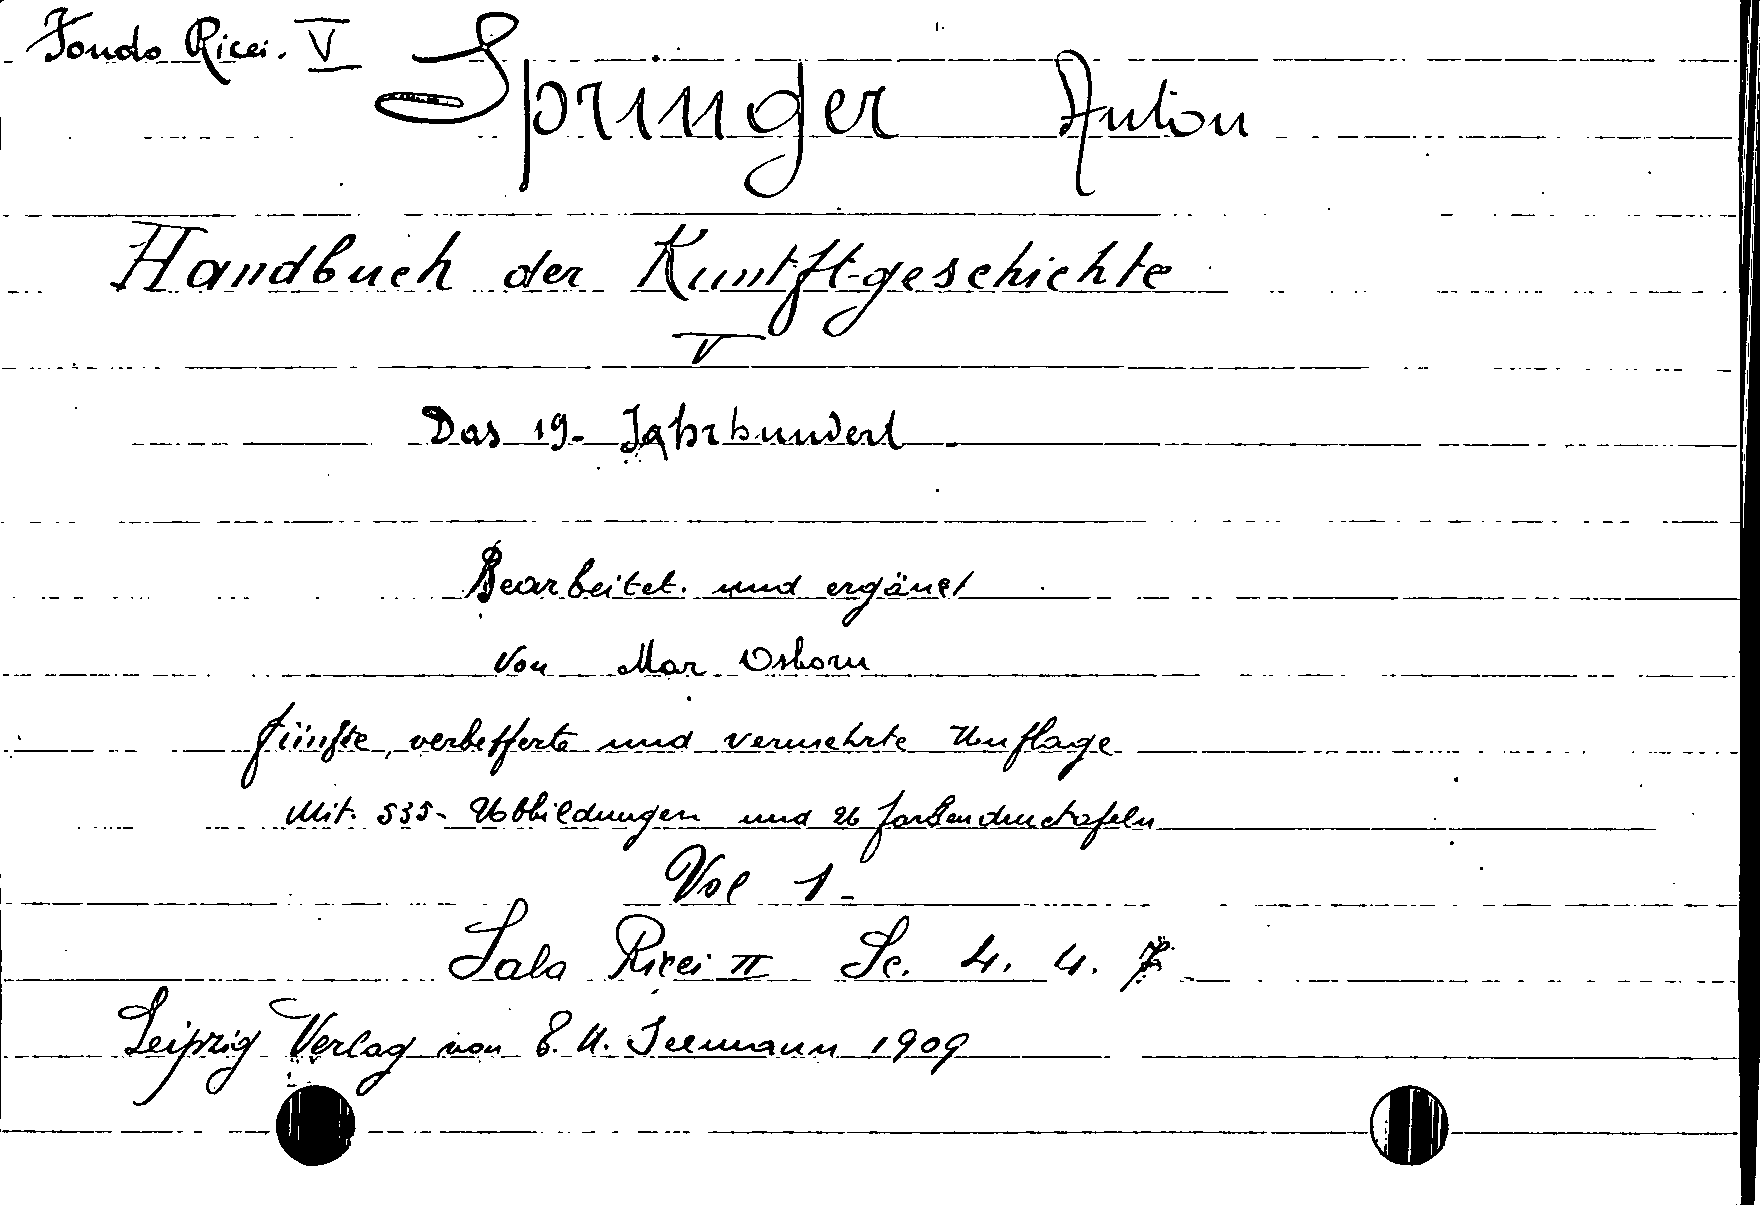 Fondo Ricci. V Springer Anton
Handbuch der Kuntft-geschichte
V
Das 19- Jahrhundert
Bearbeitet. und ergänet
Von Mar Osborn
fünfte, verbefferte und vermehrte Uuflage
Mit. 535- Ubbildungen und 26 farbendructafeln
Vol 1-
Sala Ricci II Sc. 4. 4. 7
Leipzig Verlag von E. U. Seemann 1909